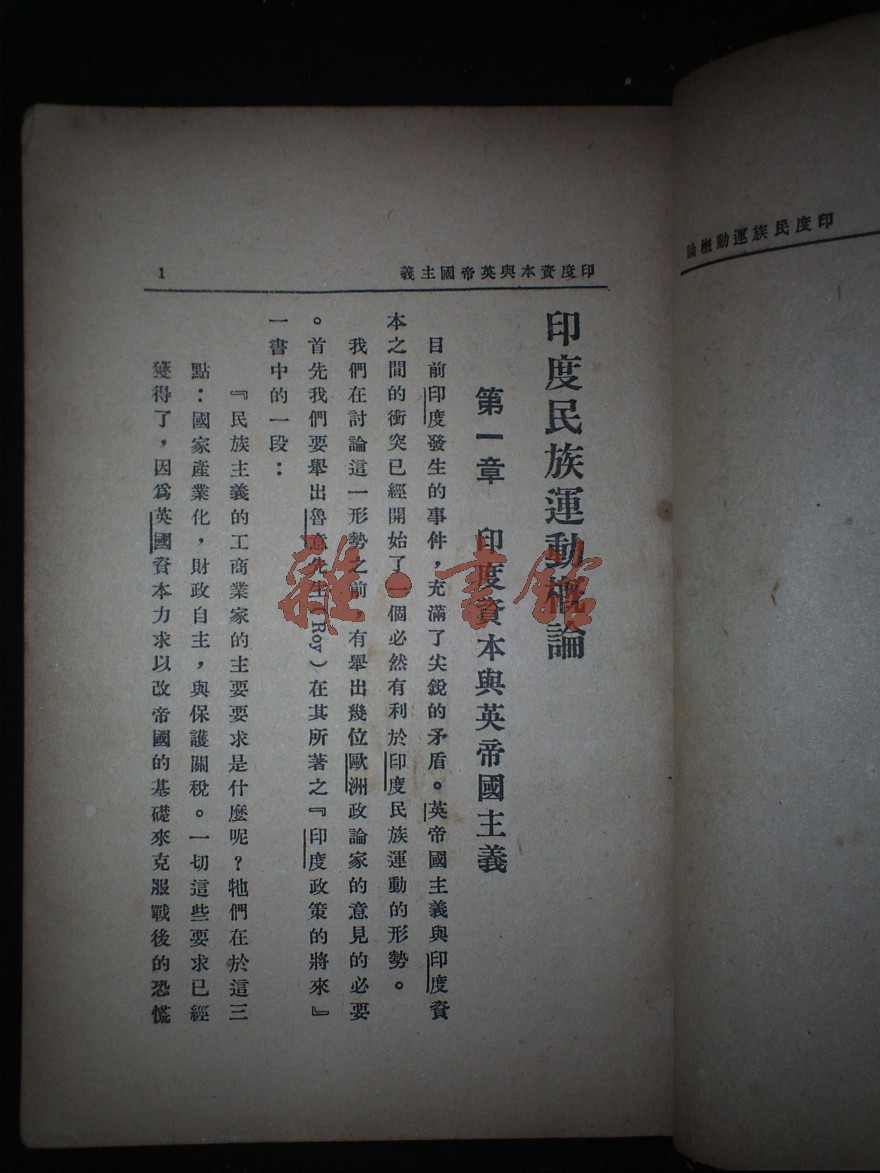 印度民族運動概論
義主國帝英與本資度印
1
印度民族運動概論
第一章　印度資本與英帝國主義
目前印度發生的事件，充滿了尖銳的矛盾。英帝國主義與印度資
本之間的衝突已經開始了一個必然有利於印度民族運動的形勢。
我們在討論這一形勢之前，有舉出幾位歐洲政論家的意見的必要
。首先我們要舉出魯意先生（Roy）在其所著之『印度政策的將來』
一書中的一段：
『民族主義的工商業家的主要要求是什麼呢？牠們在於這三
點：國家產業化，財政自主，與保護關稅。一切這些要求已經
獲得了，因爲英國資本力求以改帝國的基礎來克服戰後的恐慌
雜·書館